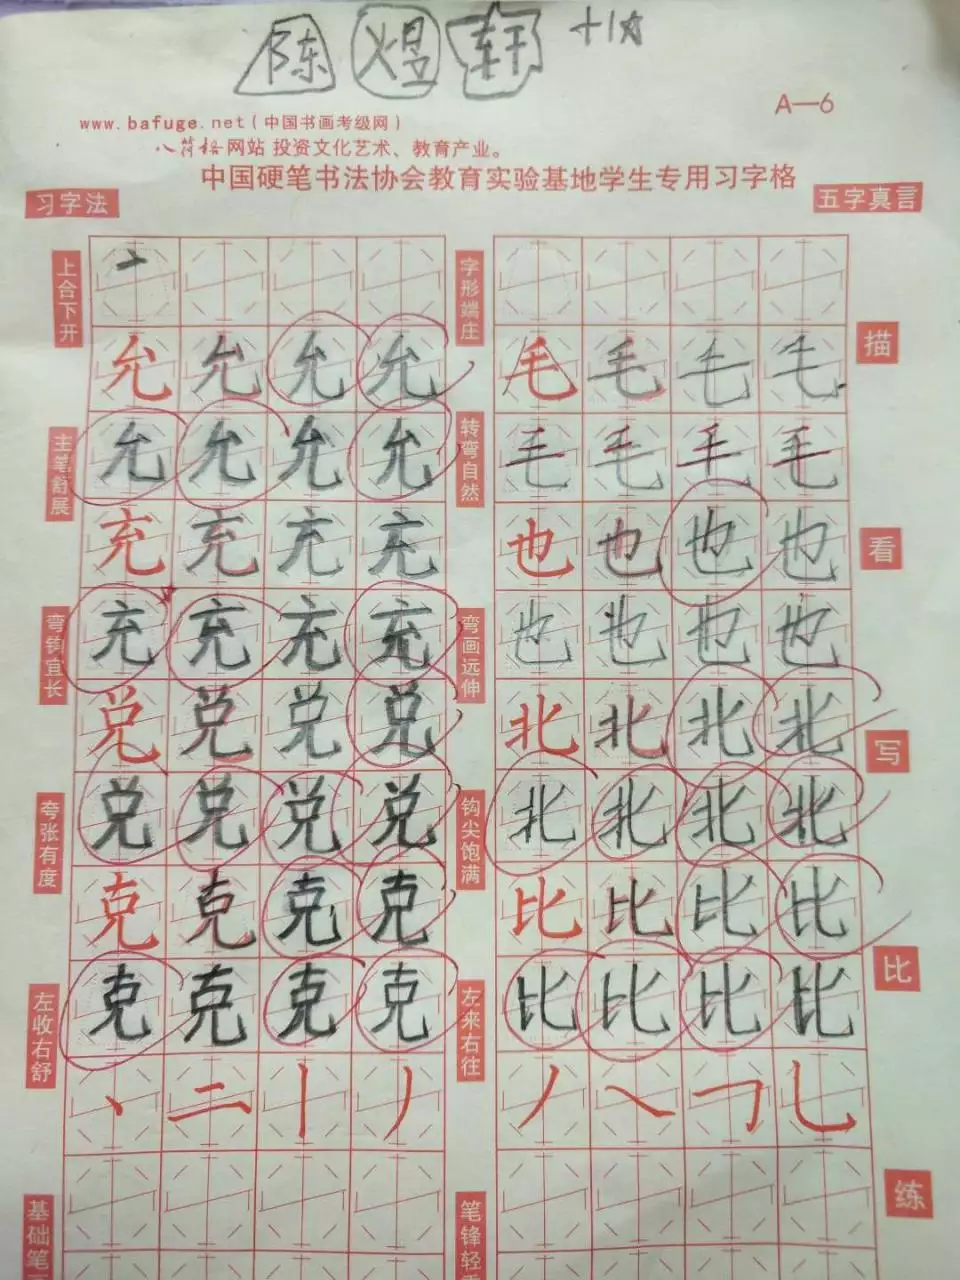 陈煜轩 +1分
A—6
www.bafuge.net(中国书画考级网)
八符格网站 投资文化艺术、教育产业。
中国硬笔书法协会教育实验基地学生专用习字格
习字法
五字真言
上合下开
字形端庄
允允允允
毛毛毛毛
描
主笔舒展
允允允允
转弯自然
毛毛毛毛
充充充充
也也也也
看
弯钩宜长
充充充充
弯画远伸
也也也也
兑兑兑兑
北北北北
写
夸张有度
兑兑兑兑
钩尖饱满
北北北北
克克克克
比比比比
比
左收右舒
克克克克
左来右往
比比比比
丶二丨丿
丿㇏㇆乚
练
基础笔
笔锋轻